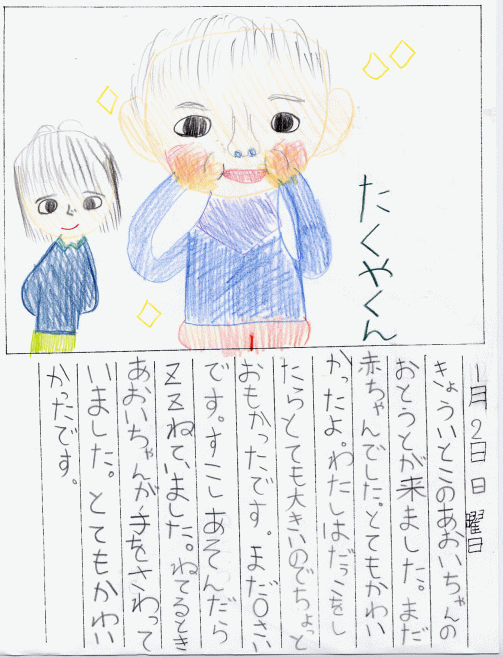 たくやくん
1月2日日曜日
きょういとこのあおいちゃんの
おとうとが来ました。まだ
赤ちゃんでした。とてもかわい
かったよ。わたしはだっこをし
たらとても大きいのでちょっと
おもかったです。まだ0さい
です。すこしあそんだら
ZZねていました。ねてるとき
あおいちゃんが手をさわって
いました。とてもかわい
かったです。